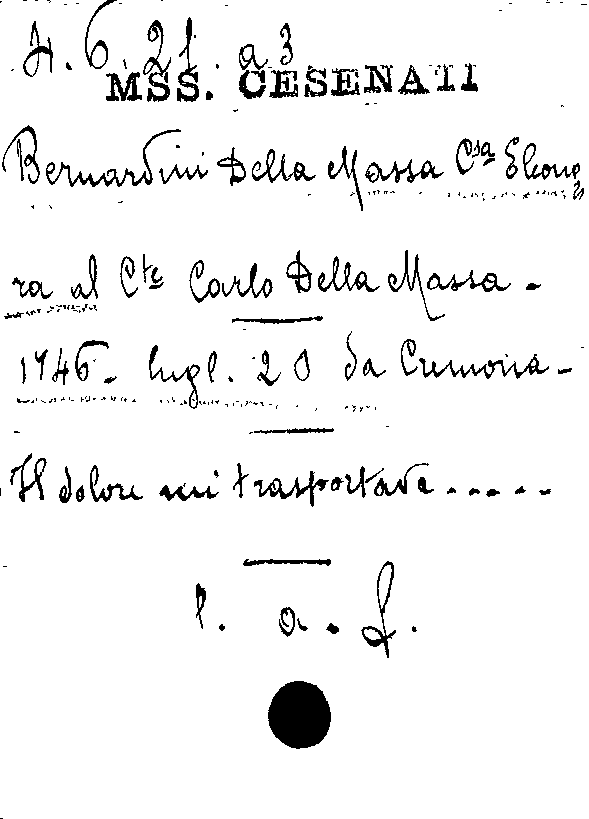 H. 6. 21. a 3
MSS. CESENATI
Bernardini Della Massa C.sa Eleono
ra al C.te Carlo Della Massa -
1746 - lugl. 20 da Cremona -
Il dolore mi trasportava .....
l. a. f.